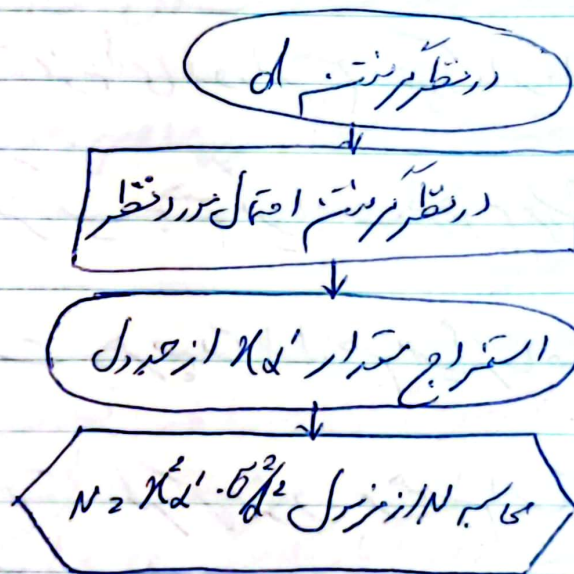 در نظر گرفتن d
در نظر گرفتن احتمال مورد نظر
استخراج مقدار xα' از جدول
محاسبه N از فرمول N = x²α' . σ²/d²